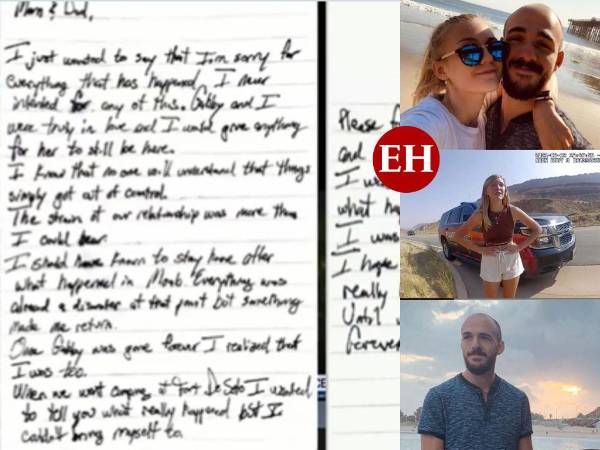 Mom & Dad,
I just wanted to say that I'm sorry for
everything that has happened. I never
intended for any of this. Gabby and I
were truly in love and I would give anything
for her to still be here.
I know that no one will understand that things
simply got out of control.
The strain at our relationship was more than
I could bear.
I should have known to stay home after
what happened in Moab. Everything was
already a disaster at that point but something
made me return.
Once Gabby was gone forever I realized that
I was too.
When we went camping at Fort De Soto I wanted
to tell you what really happened but I
couldn't bring myself to.
Please
and
I
what
I was
I hope
really
Until
forever
EH